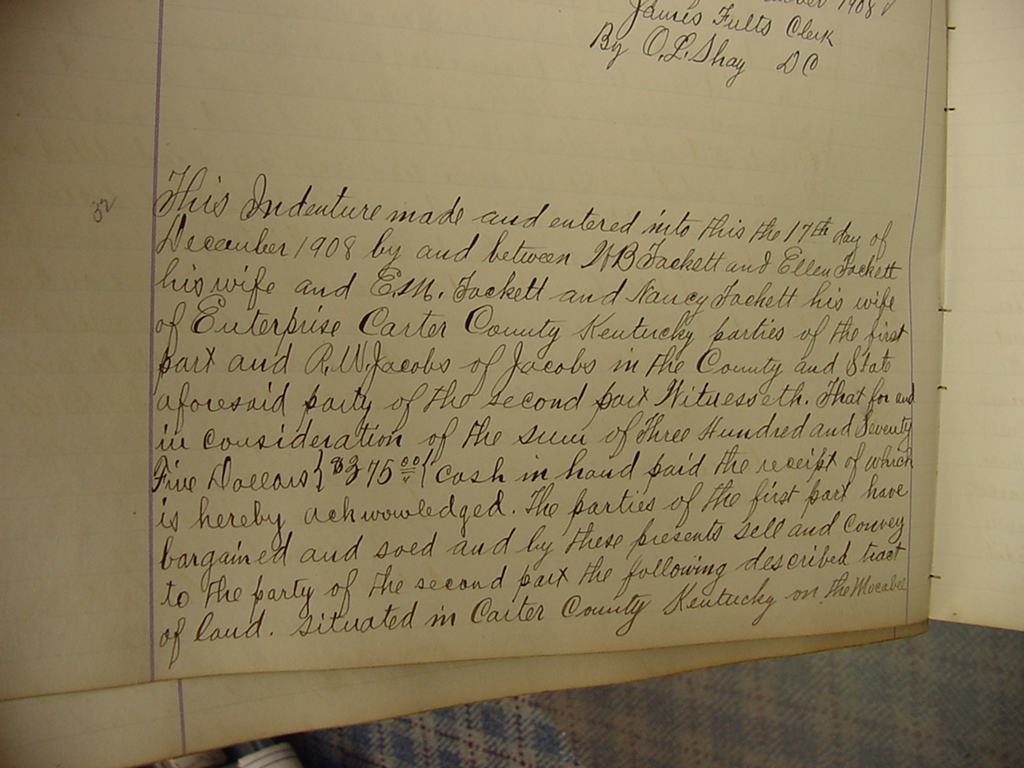 1908
James Fults Clerk
By O.L. Shay DC
32
This Indenture made and entered into this the 17th day of
December 1908 by and between W B Fackett and Ellen Fackett
his wife and E.M. Fackett and Nancy Fackett his wife
of Enterprise Carter County Kentucky parties of the first
part and R.W. Jacobs of Jacobs in the County and State
aforesaid party of the second part Witnesseth. That for and
in consideration of the sum of Three Hundred and Seventy
Five Dollars {$375 00} cash in hand paid the receipt of which
is hereby acknowledged. The parties of the first part have
bargained and soed and by these presents sell and convey
to the party of the second part the following described tract
of land. situated in Carter County Kentucky on the Mocabee